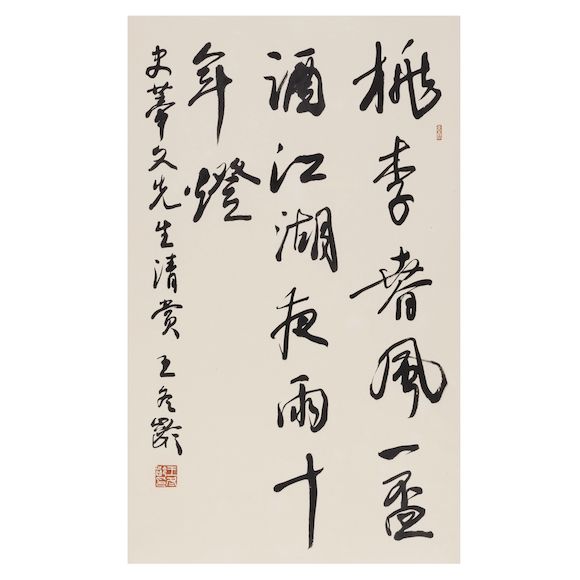 桃李春風一盃
酒江湖夜雨十
年燈
史華文先生清賞 王冬齡